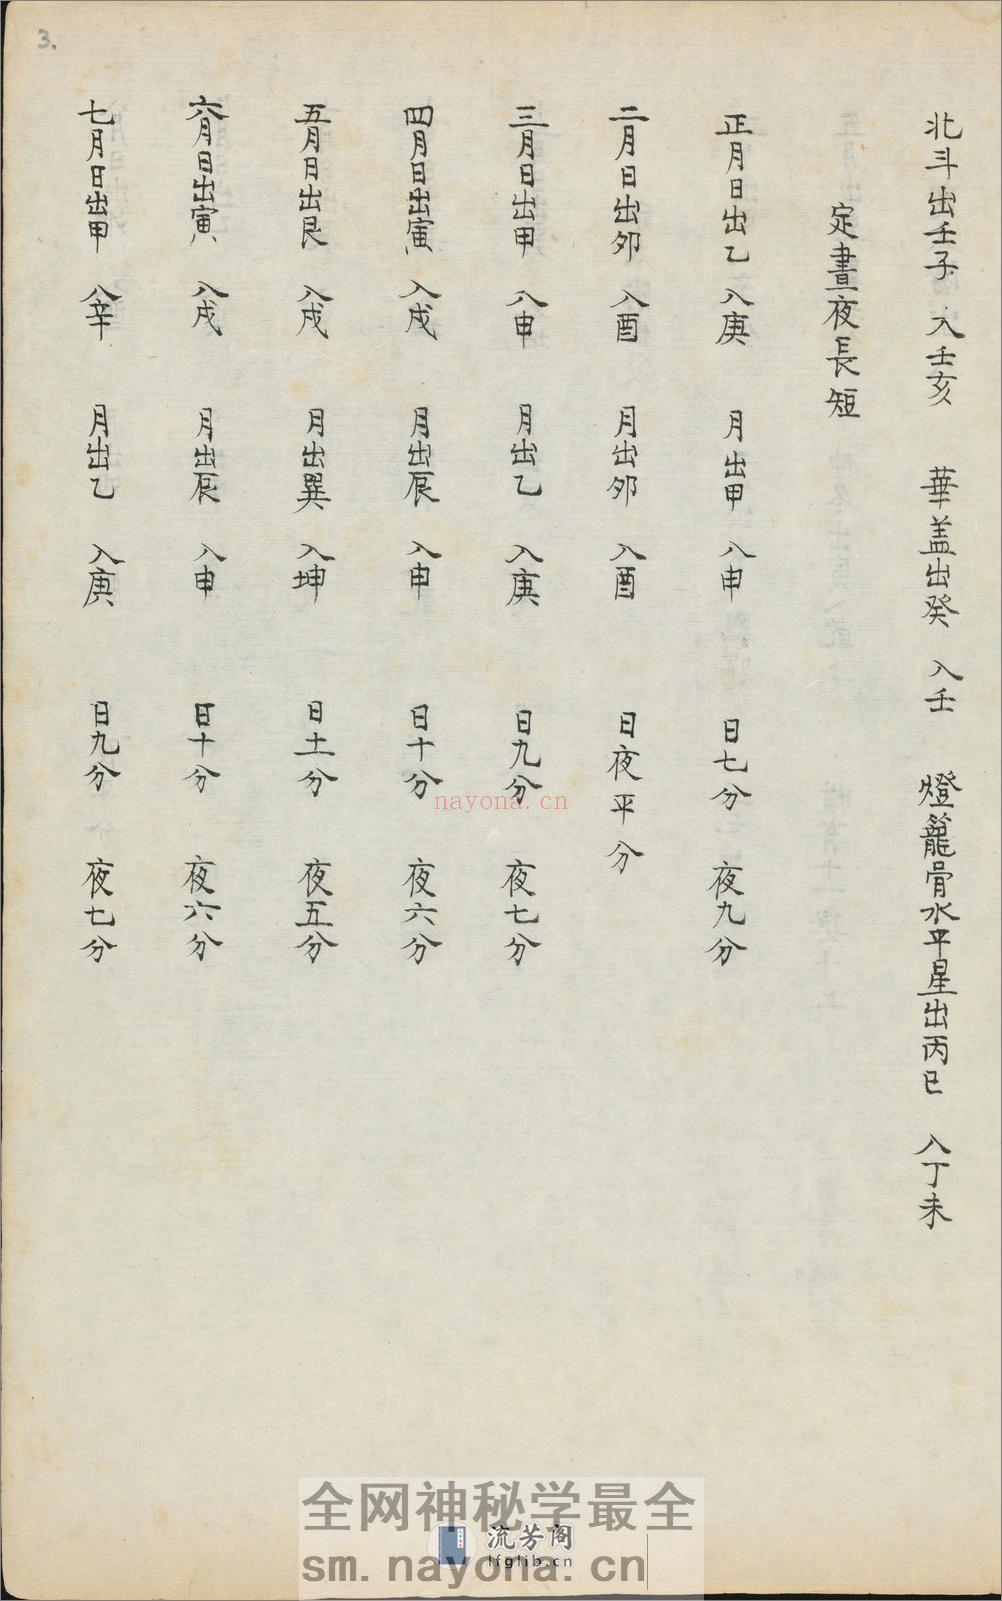 3.
北斗出壬子 入壬亥 華盖出癸 入壬 燈籠骨水平星出丙巳 入丁未
定晝夜長短
正月日出乙 入庚 月出甲 入申 日七分 夜九分
二月日出夘 入酉 月出夘 入酉 日夜平分
三月日出甲 入申 月出乙 入庚 日九分 夜七分
四月日出寅 入戍 月出辰 入申 日十分 夜六分
五月日出艮 入戍 月出巽 入坤 日十一分 夜五分
六月日出寅 入戍 月出辰 入申 日十分 夜六分
七月日出甲 入辛 月出乙 入庚 日九分 夜七分
nayona.cn
全网神秘学最全
流芳阁
lfglib.cn
sm.nayona.cn